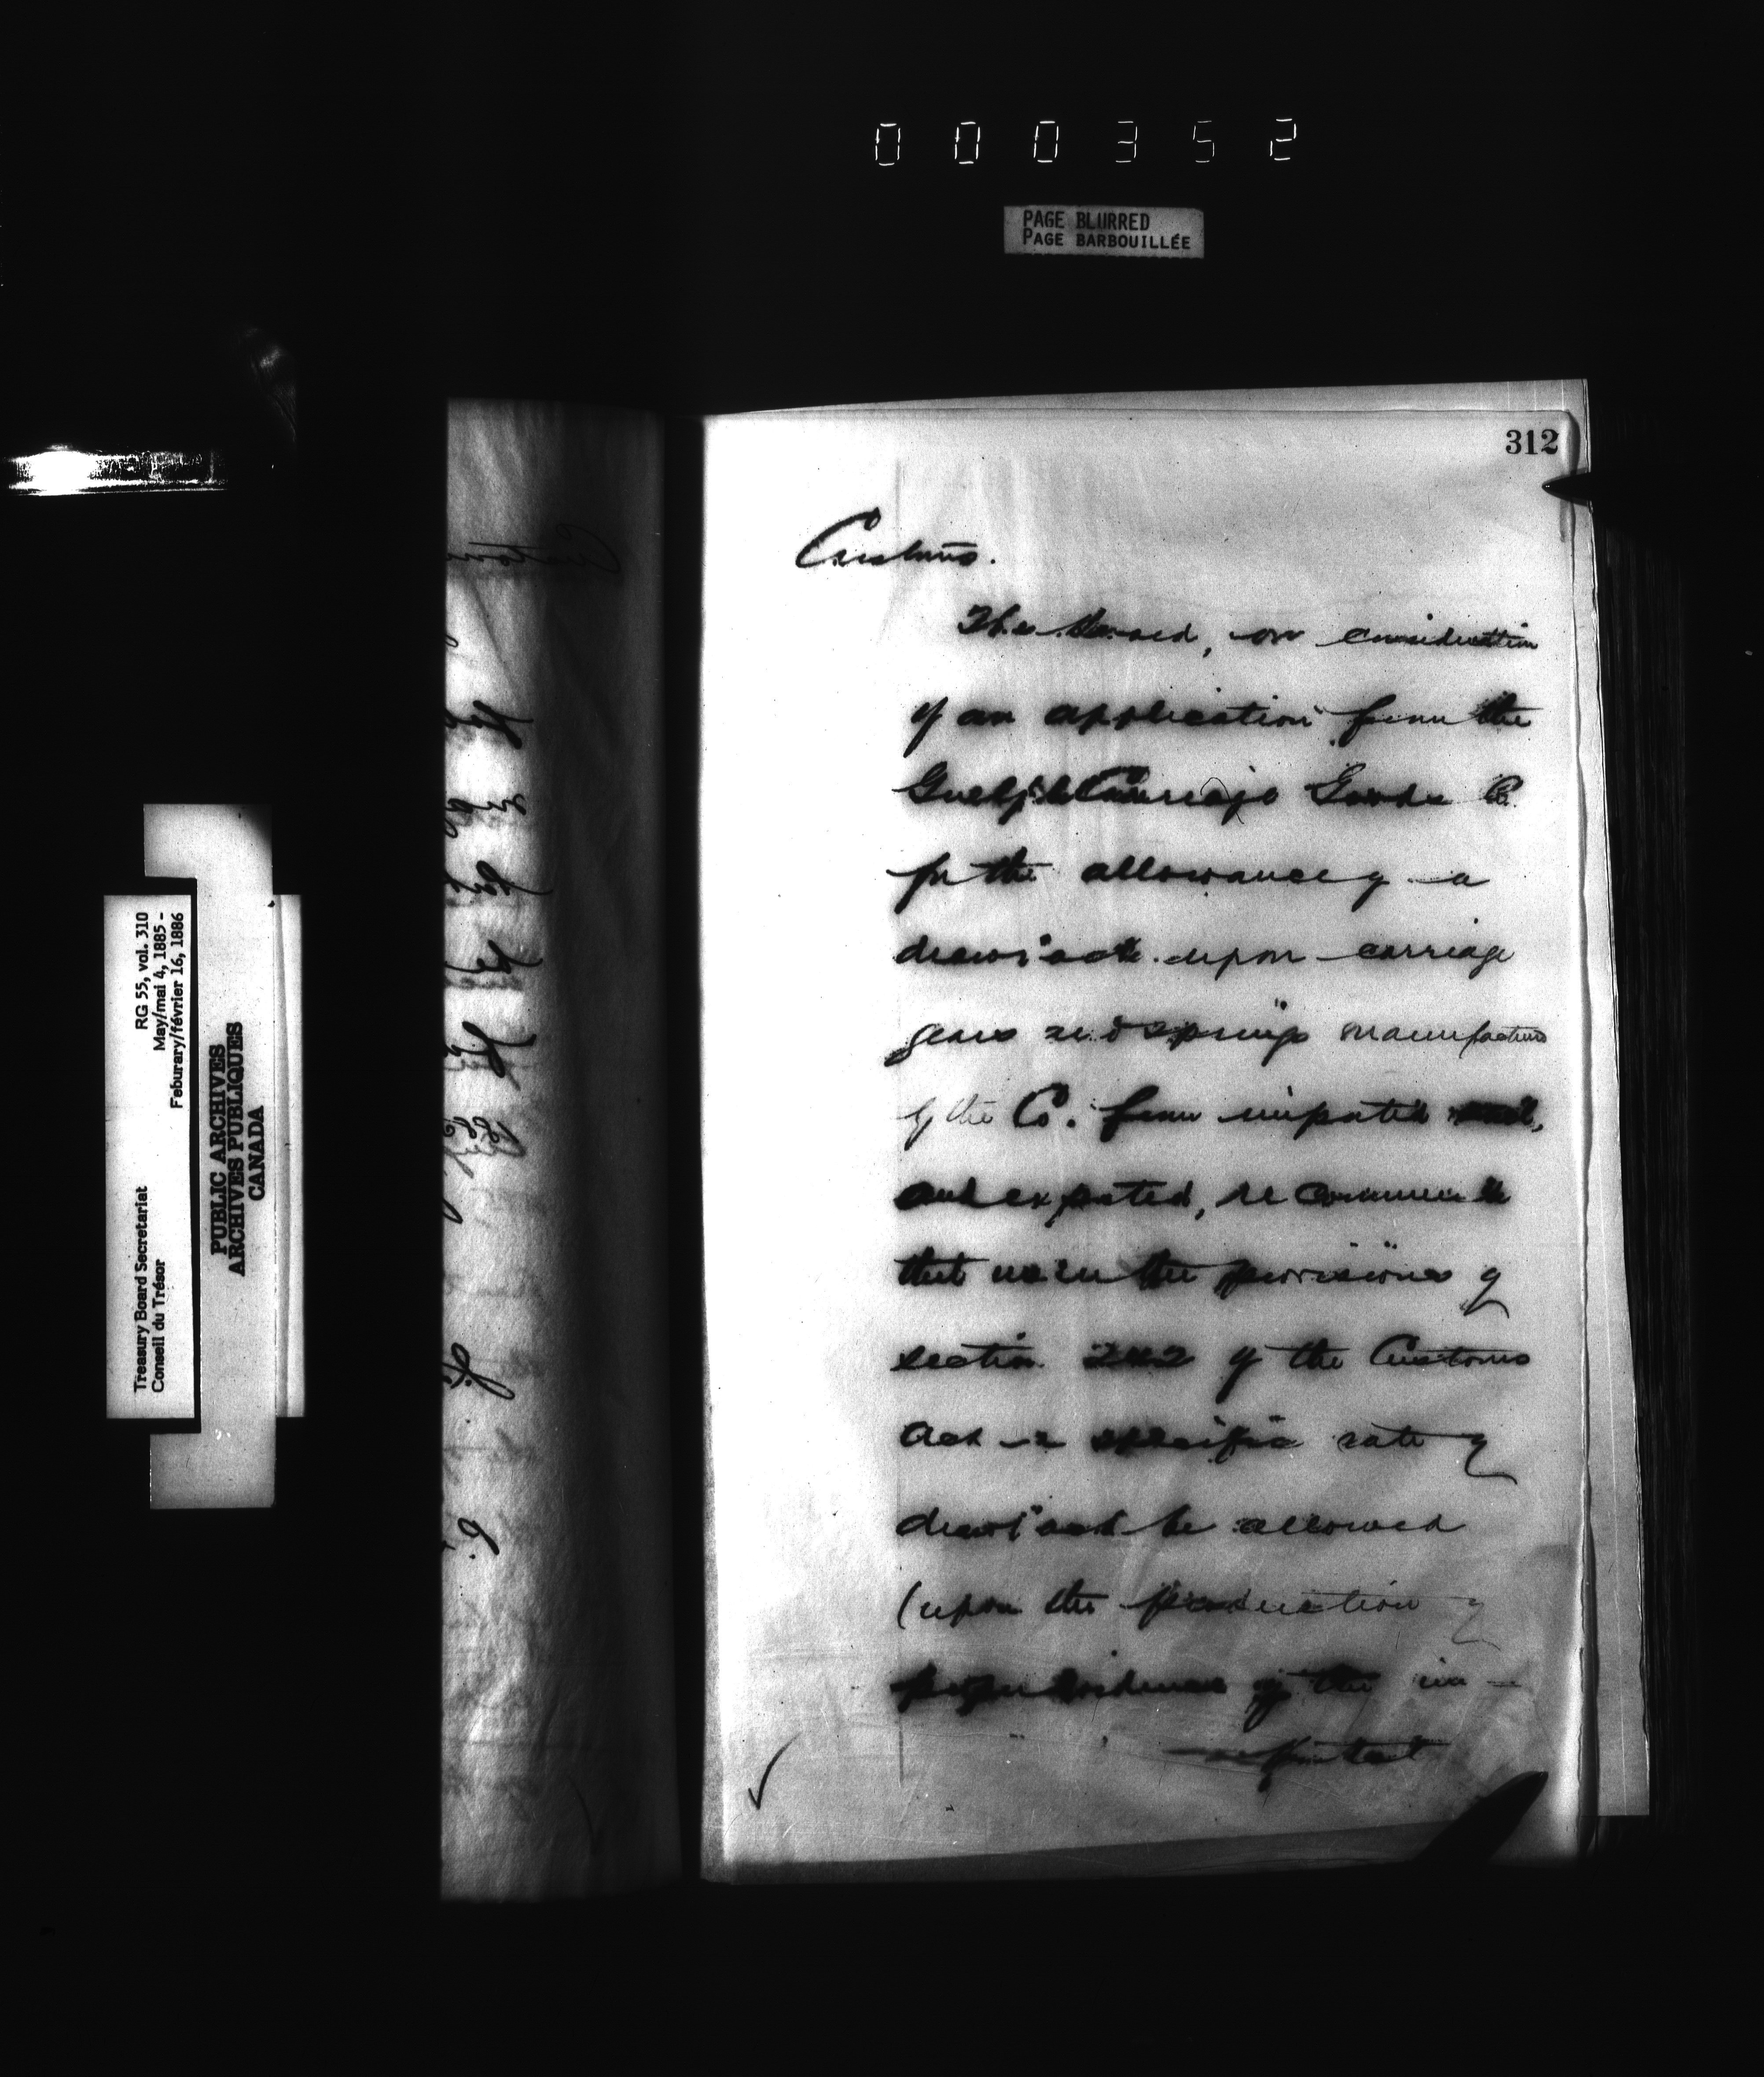 000352
PAGE BLURRED
PAGE BARBOUILLÉE
RG 55, vol. 310
May/mai 4, 1885 -
Feburary/février 16, 1886
Treasury Board Secretariat
Conseil du Trésor
PUBLIC ARCHIVES
ARCHIVES PUBLIQUES
CANADA
312
Customs.
The Board, on consideration
of an application from the
Guelph Carriage Goods Co.
for the allowance of a
drawback upon carriage
gears and springs manufactured
by the Co. from imported
and exported, recommend
that under the provisions of
section 242 of the Customs
Act a specific rate of
drawback be allowed
(upon the production of
proper evidence of the im-